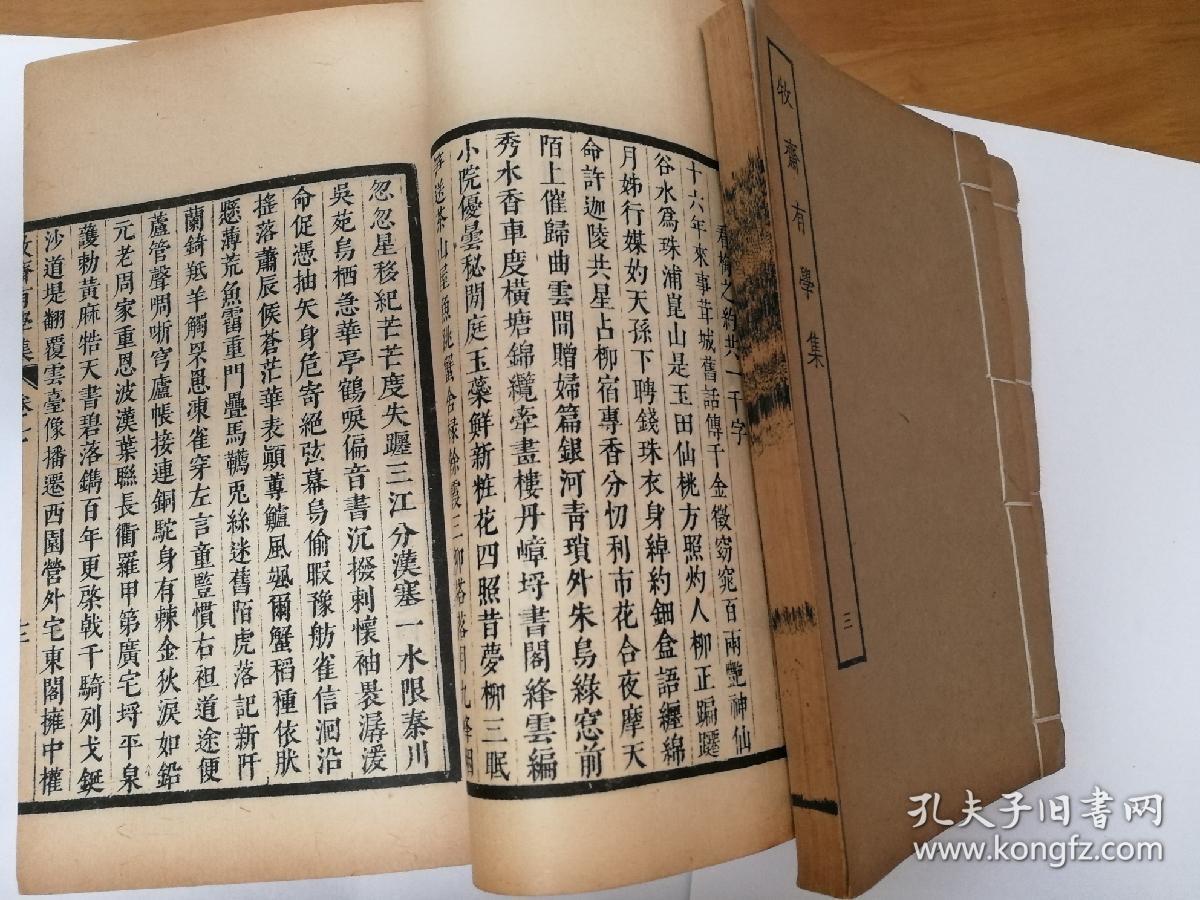 牧齋有學集
三
看梅之約共一千字
十六年來事茸城舊話傳千金徵窈窕百兩艷神仙
谷水爲珠浦崑山是玉田仙桃方照灼人柳正蹁躚
月姊行媒妁天孫下聘錢珠衣身綽約鈿盒語纏綿
命許迦陵共星占柳宿專香分忉利市花合夜摩天
陌上催歸曲雲間贈婦篇銀河青瑣外朱鳥綠窓前
秀水香車度橫塘錦纜牽晝樓丹嶂埒書閣絳雲編
小院優曇秘閒庭玉蘂鮮新粧花四照昔夢柳三眠
忽忽星移紀芒芒度失躔三江分漢塞一水限秦川
吳苑烏栖急華亭鶴唳偏音書沉撥剌懷袖畏潺湲
命促憑抽矢身危寄絕弦幕烏偷暇豫舫雀信洄沿
搖落蕭辰候蒼茫華表顛蓴鱸風颯爾蟹稻種依肰
懸薄荒魚雷重門疊馬韉兎絲迷舊陌虎落記新阡
蘭錡羝羊觸罘罳凍雀穿左言童豎慣右袒道途便
蘆管聲啁哳穹廬帳接連銅駝身有棘金狄淚如鉛
元老周家重恩波漢葉聯長衢羅甲第廣宅埒平泉
護勅黃麻誥天書碧落鐫百年更棨戟千騎列戈鋋
沙道堤翻覆雲臺像播遷西園營外宅東閣擁中權
孔夫子旧书网
www.kongfz.com